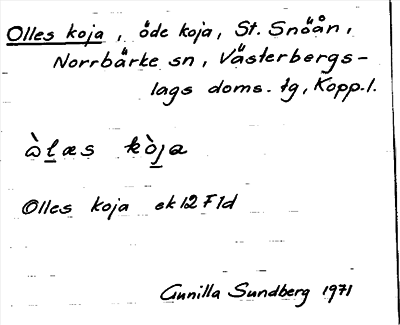 Olles koja, öde koja, St. Snöån,
Norrbärke sn, Västerbergs-
lags doms. tg, Kopp.l.
ὼlæs kòja
Olles koja ek 12 F 1d
Gunilla Sundberg 1971